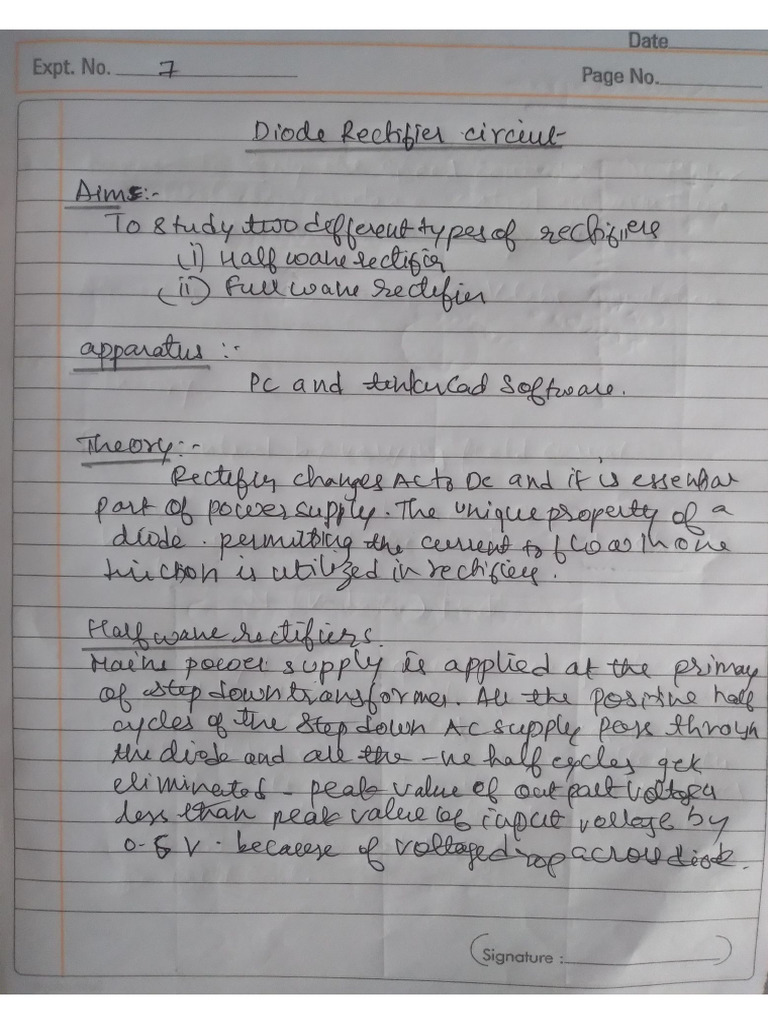 Date
Expt. No. 7
Page No.
Diode Rectifier circiut
Aims:-
To study two different types of rectifiers
(i) Half wave rectifier
(ii) Full wave rectifier
apparatus :-
PC and tinkerCad Software.
Theory:-
Rectifier changes AC to DC and it is essential
part of power supply. The unique property of a
diode. permitting the current to flow in one
is utilized in rectifiers.
Half wave rectifiers.
Mains power supply is applied at the primay
of step down transformer. All the positive half
cycles of the step down AC supply pass through
the diode and all the -ve half cycles get
eliminated - peak value of out put voltage
less than peak value of input voltage by
V. because of voltage drop across diode.
Signature :